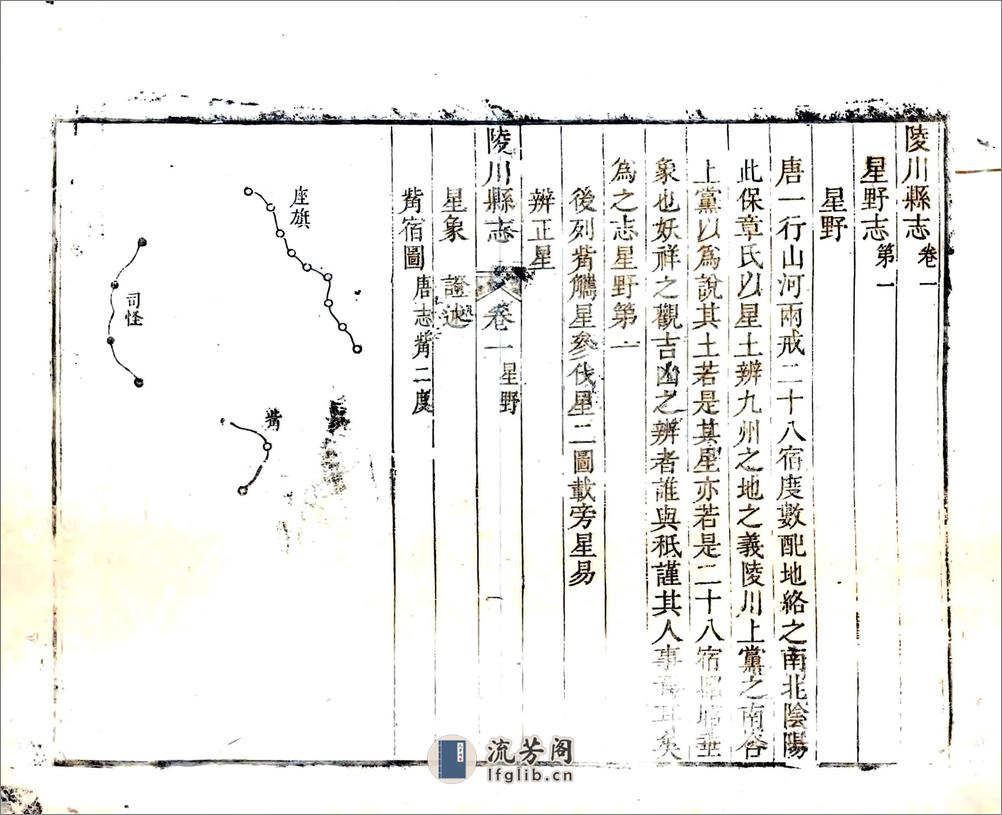 陵川縣志 卷一
星野志 第一
星野
唐一行山河兩戒二十八宿度數配地絡之南北陰陽
此保章氏以星土辨九州之地之義陵川上黨之南谷
上黨以為說其土若是其星亦若是二十八宿昭昭垂
象也妖祥之觀吉凶之辨者誰與祇謹其人事耳矣
為之志星野第一
後列觜觿星參伐星二圖載旁星易
辨正星
陵川縣志 卷一 星野 一
星象 證述
觜宿圖 唐志觜二度
座旗
觜
司怪
流芳阁
lfglib.cn